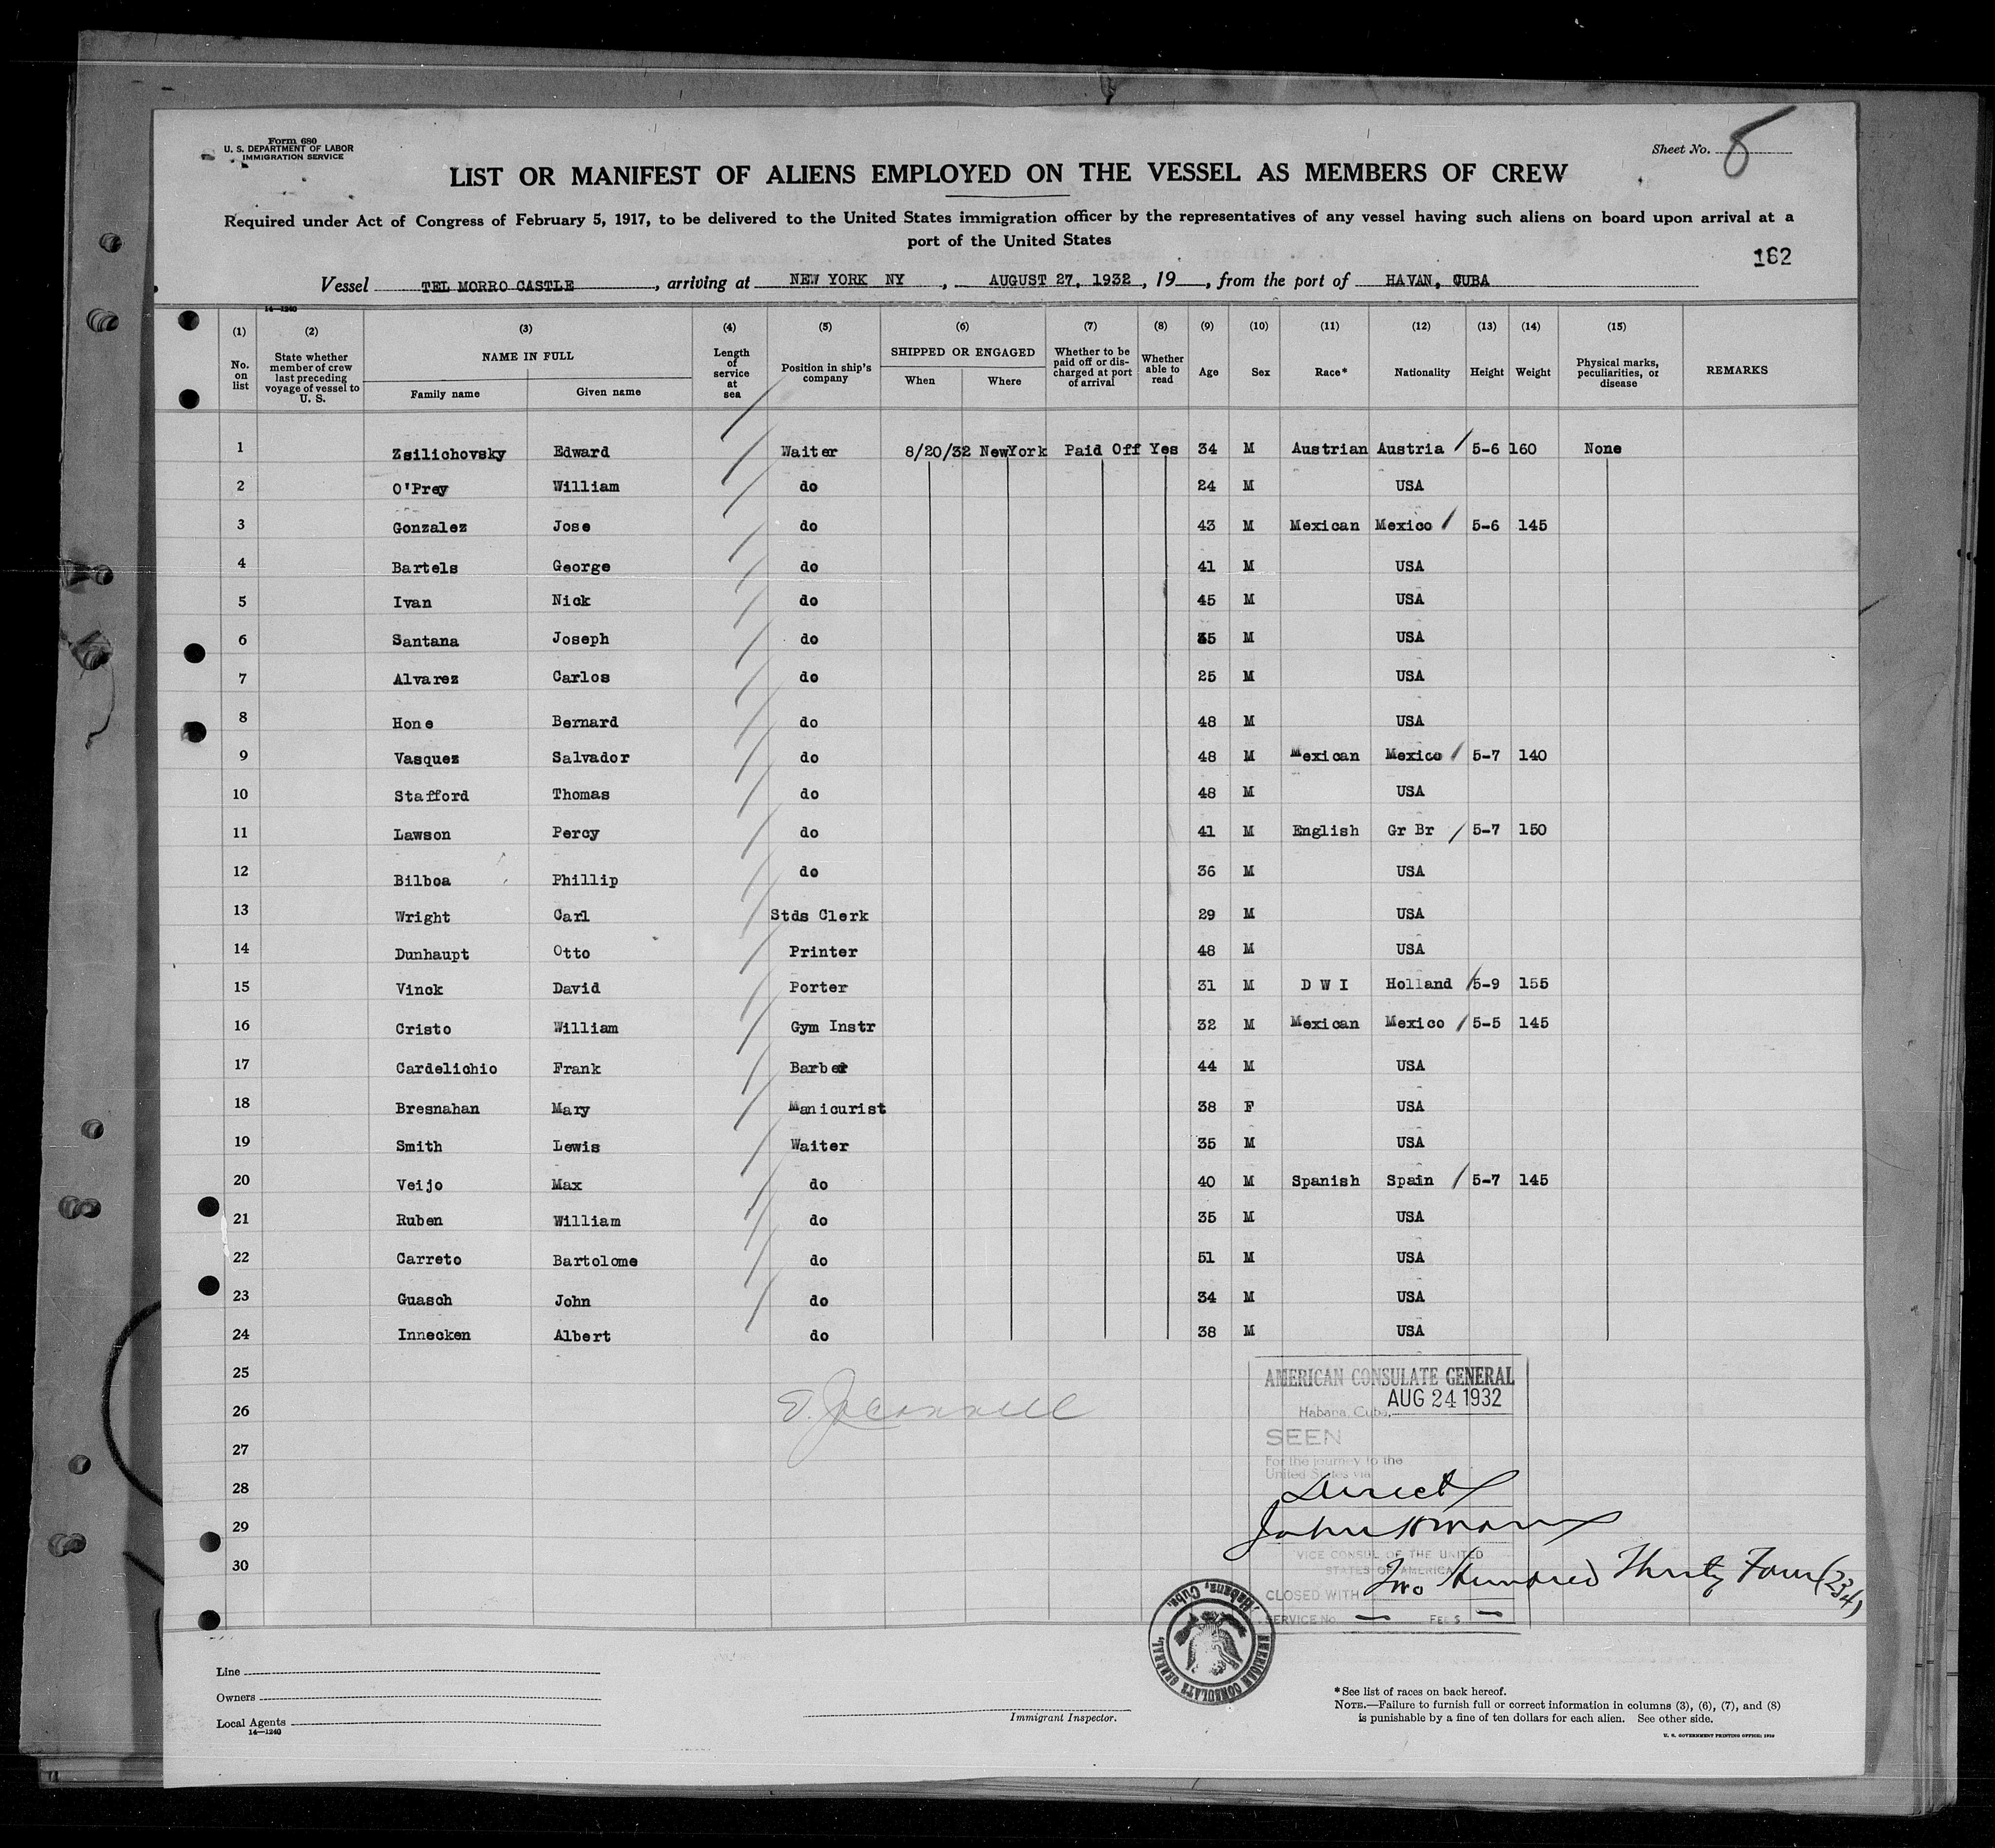 Form 680
U. S. DEPARTMENT OF LABOR
IMMIGRATION SERVICE
Sheet No. 8
LIST OR MANIFEST OF ALIENS EMPLOYED ON THE VESSEL AS MEMBERS OF CREW
Required under Act of Congress of February 5, 1917, to be delivered to the United States immigration officer by the representatives of any vessel having such aliens on board upon arrival at a
port of the United States
162
Vessel TEL MORRO CASTLE, arriving at NEW YORK NY, AUGUST 27, 1932, 19, from the port of HAVAN, CUBA
14—1240
(1) (2) (3) (4) (5) (6) (7) (8) (9) (10) (11) (12) (13) (14) (15)
No. on list State whether member of crew last preceding voyage of vessel to U. S. NAME IN FULL Family name Given name Length of service at sea Position in ship's company SHIPPED OR ENGAGED When Where Whether to be paid off or discharged at port of arrival Whether able to read Age Sex Race* Nationality Height Weight Physical marks, peculiarities, or disease REMARKS
1 Zsilichovsky Edward Waiter 8/20/32 NewYork Paid Off Yes 34 M Austrian Austria 5-6 160 None
2 O'Prey William do 24 M USA
3 Gonzalez Jose do 43 M Mexican Mexico 5-6 145
4 Bartels George do 41 M USA
5 Ivan Nick do 45 M USA
6 Santana Joseph do 35 M USA
7 Alvarez Carlos do 25 M USA
8 Hone Bernard do 48 M USA
9 Vasquez Salvador do 48 M Mexican Mexico 5-7 140
10 Stafford Thomas do 48 M USA
11 Lawson Percy do 41 M English Gr Br 5-7 150
12 Bilboa Phillip do 36 M USA
13 Wright Carl Stds Clerk 29 M USA
14 Dunhaupt Otto Printer 48 M USA
15 Vinck David Porter 31 M D W I Holland 5-9 155
16 Cristo William Gym Instr 32 M Mexican Mexico 5-5 145
17 Cardelichio Frank Barber 44 M USA
18 Bresnahan Mary Manicurist 38 F USA
19 Smith Lewis Waiter 35 M USA
20 Veijo Max do 40 M Spanish Spain 5-7 145
21 Ruben William do 35 M USA
22 Carreto Bartolome do 51 M USA
23 Guasch John do 34 M USA
24 Innecken Albert do 38 M USA
25
26
27
28
29
30
AMERICAN CONSULATE GENERAL
AUG 24 1932
Habana, Cuba,
SEEN
For the journey to the
United States via
Direct
VICE CONSUL OF THE UNITED
STATES OF AMERICA
CLOSED WITH Two Hundred Thirty Four (234)
SERVICE No. — FEES —
AMERICAN CONSULATE GENERAL, Habana, Cuba.
Line
Owners
Local Agents
14—1240
Immigrant Inspector.
*See list of races on back hereof.
NOTE.—Failure to furnish full or correct information in columns (3), (6), (7), and (8)
is punishable by a fine of ten dollars for each alien. See other side.
U. S. GOVERNMENT PRINTING OFFICE: 1930